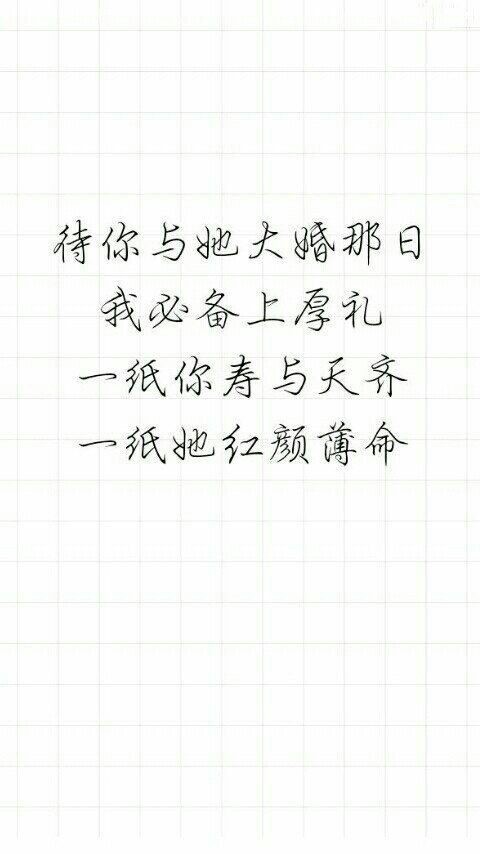 待你与她大婚那日
我必备上厚礼
一纸你寿与天齐
一纸她红颜薄命